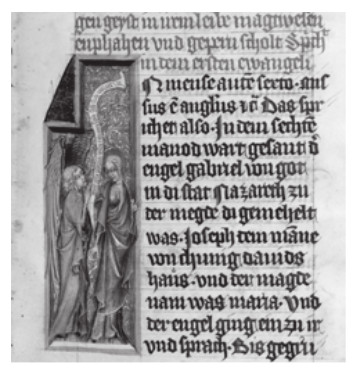 gen geyst in irem leibe magtweser
enphahen vnd gepern scholt Sprich
in dem ersten ewangeli
In mense autē sexto. mis
sus ē angl̄us ⁊c̄ Das spr
ichet also. In dem sechtē
manod wart gesant d̄
engel gabriel von got
in di stat Nazareth zu
der megde di gemehelt
was. Joseph dem māne
von chunig dauids
haus. vnd der magde
nam was maria. Vnd
der engel ging ein zu ir
vnd sprach. Bis gegru